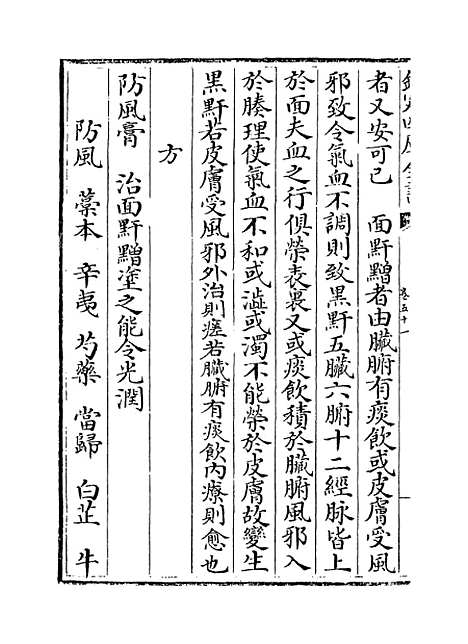 欽定四庫全書
卷五十一
者又安可已　面䵟䵴者由臟腑有痰飲或皮膚受風
邪致令氣血不調則致黑䵟五臟六腑十二經脉皆上
於面夫血之行俱榮表裏又或痰飲積於臟腑風邪入
於腠理使氣血不和或澁或濁不能榮於皮膚故變生
黑䵟若皮膚受風邪外治則瘥若臟腑有痰飲内療則愈也
方
防風膏　治面䵟䵴塗之能令光潤
防風　藁本　辛夷　芍藥　當歸　白芷　牛